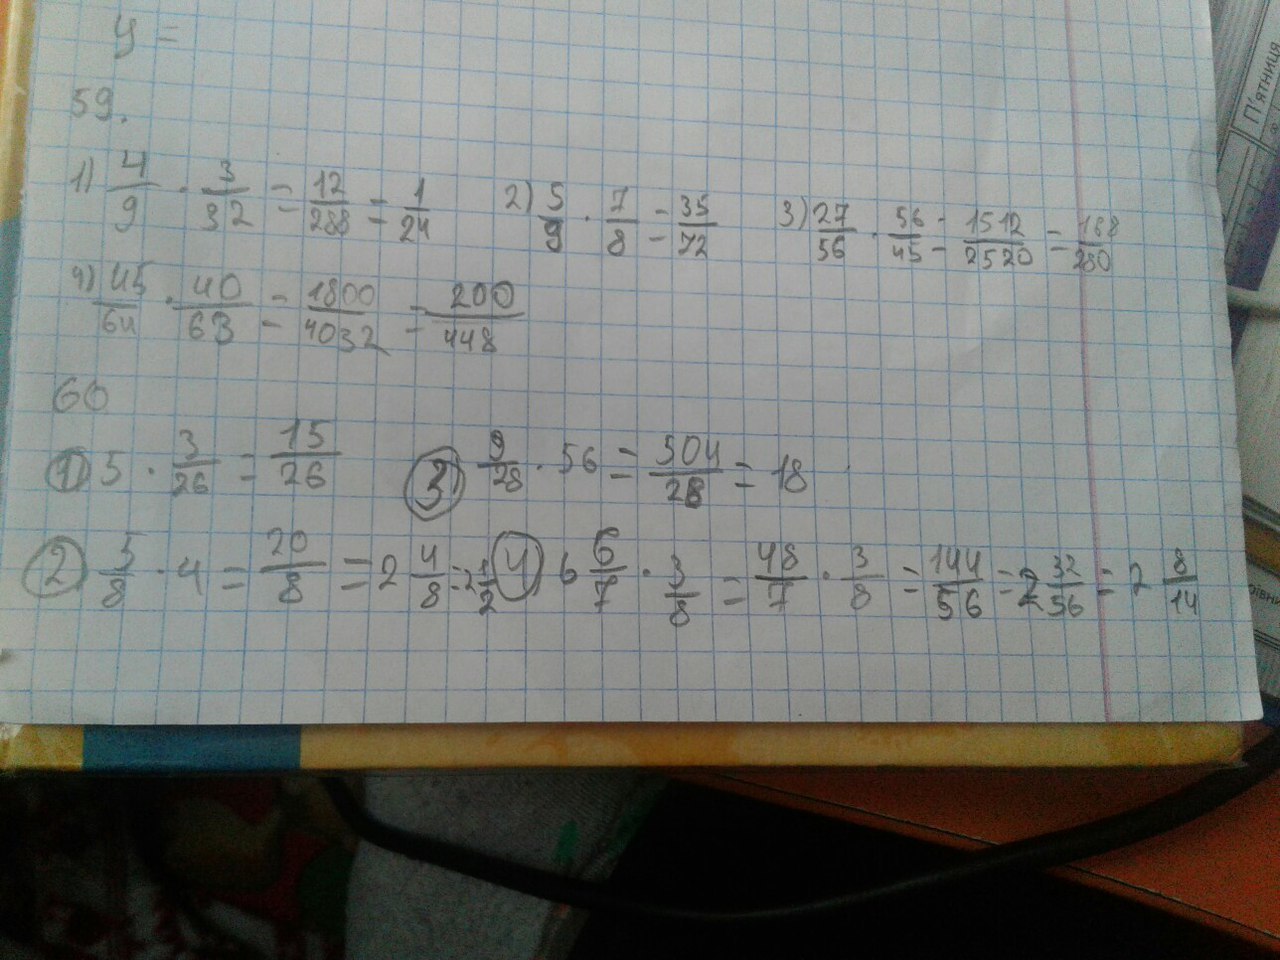 y =
59.
1) 4/9 · 3/32 = 12/288 = 1/24 2) 5/9 · 7/8 = 35/72 3) 27/56 · 56/45 = 1512/2520 = 168/280
4) 45/64 · 40/63 = 1800/4032 = 200/448
60
1) 5 · 3/26 = 15/26 3) 9/28 · 56 = 504/28 = 18
2) 5/8 · 4 = 20/8 = 2 4/8 = 2 1/2 4) 6 6/7 · 3/8 = 48/7 · 3/8 = 144/56 = 2 32/56 = 2 8/14
П'ятниця